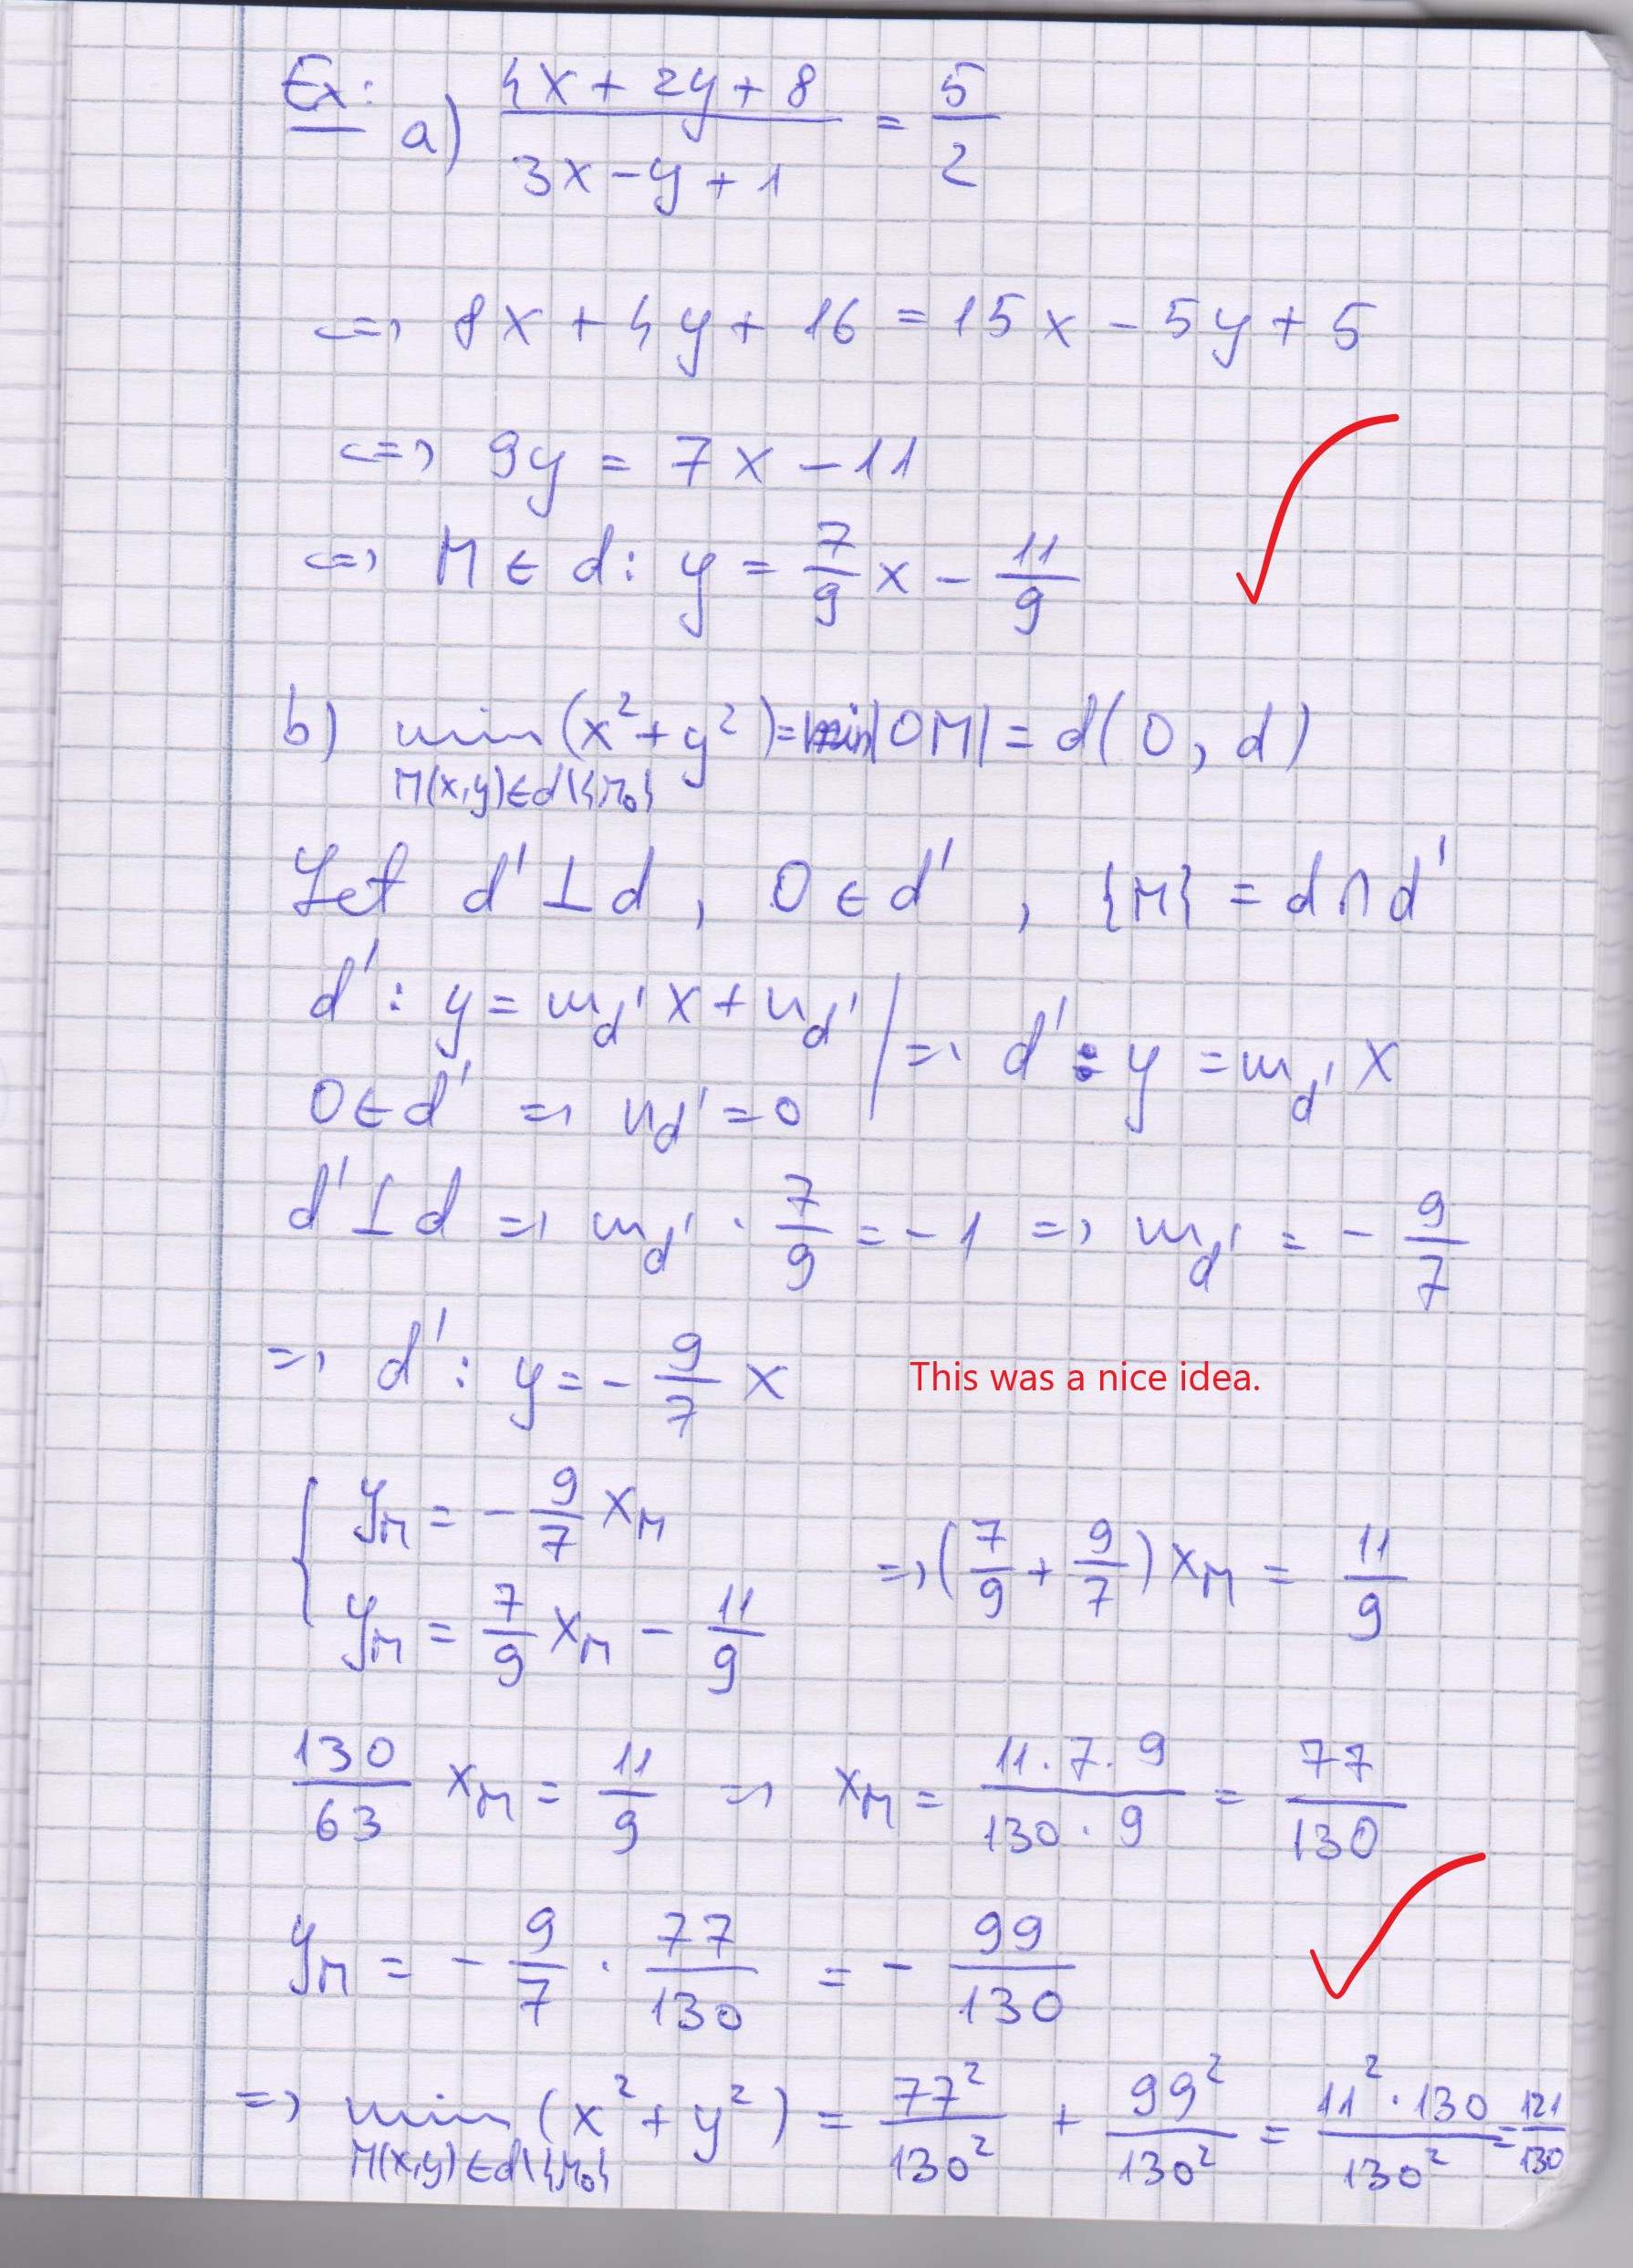 Ex: a) (4x + 2y + 8)/(3x - y + 1) = 5/2
<=> 8x + 4y + 16 = 15x - 5y + 5
<=> 9y = 7x - 11
<=> M ∈ d: y = 7/9 x - 11/9
b) min (x² + y²) = min |OM| = d(O, d)
M(x,y)∈d\{M₀}
Let d' ⊥ d, O ∈ d', {M} = d ∩ d'
d': y = m_d' x + n_d' | => d': y = m_d' x
O ∈ d' => n_d' = 0
d' ⊥ d => m_d' · 7/9 = -1 => m_d' = - 9/7
=> d': y = - 9/7 x This was a nice idea.
{ y_M = - 9/7 x_M
y_M = 7/9 x_M - 11/9 => (7/9 + 9/7) x_M = 11/9
130/63 x_M = 11/9 => x_M = (11·7·9)/(130·9) = 77/130
y_M = - 9/7 · 77/130 = - 99/130
=> min (x² + y²) = 77²/130² + 99²/130² = (11²·130)/130² = 121/130
M(x,y)∈d\{M₀}